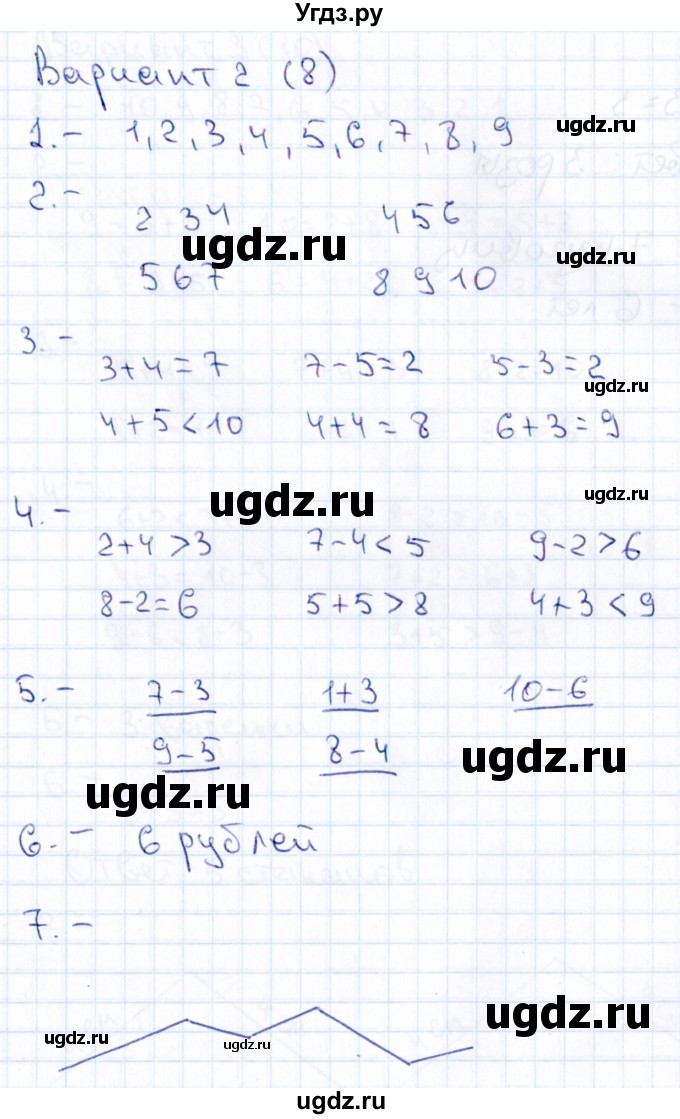 Угдз.ру
Вариант 2 (8)
1.- 1, 2, 3, 4, 5, 6, 7, 8, 9
ugdz.ru
2.-
2 3 4 4 5 6
ugdz.ru
ugdz.ru
5 6 7 8 9 10
3.-
3+4=7 7-5=2 5-3=2
ugdz.ru
4+5<10 4+4=8 6+3=9
4.-
ugdz.ru
ugdz.ru
2+4>3 7-4<5 9-2>6
8-2=6 5+5>8 4+3<9
5.- 7-3 1+3 10-6
9-5 8-4
ugdz.ru
ugdz.ru
6.- 6 рублей
7.-
ugdz.ru
ugdz.ru
ugdz.ru
ugdz.ru